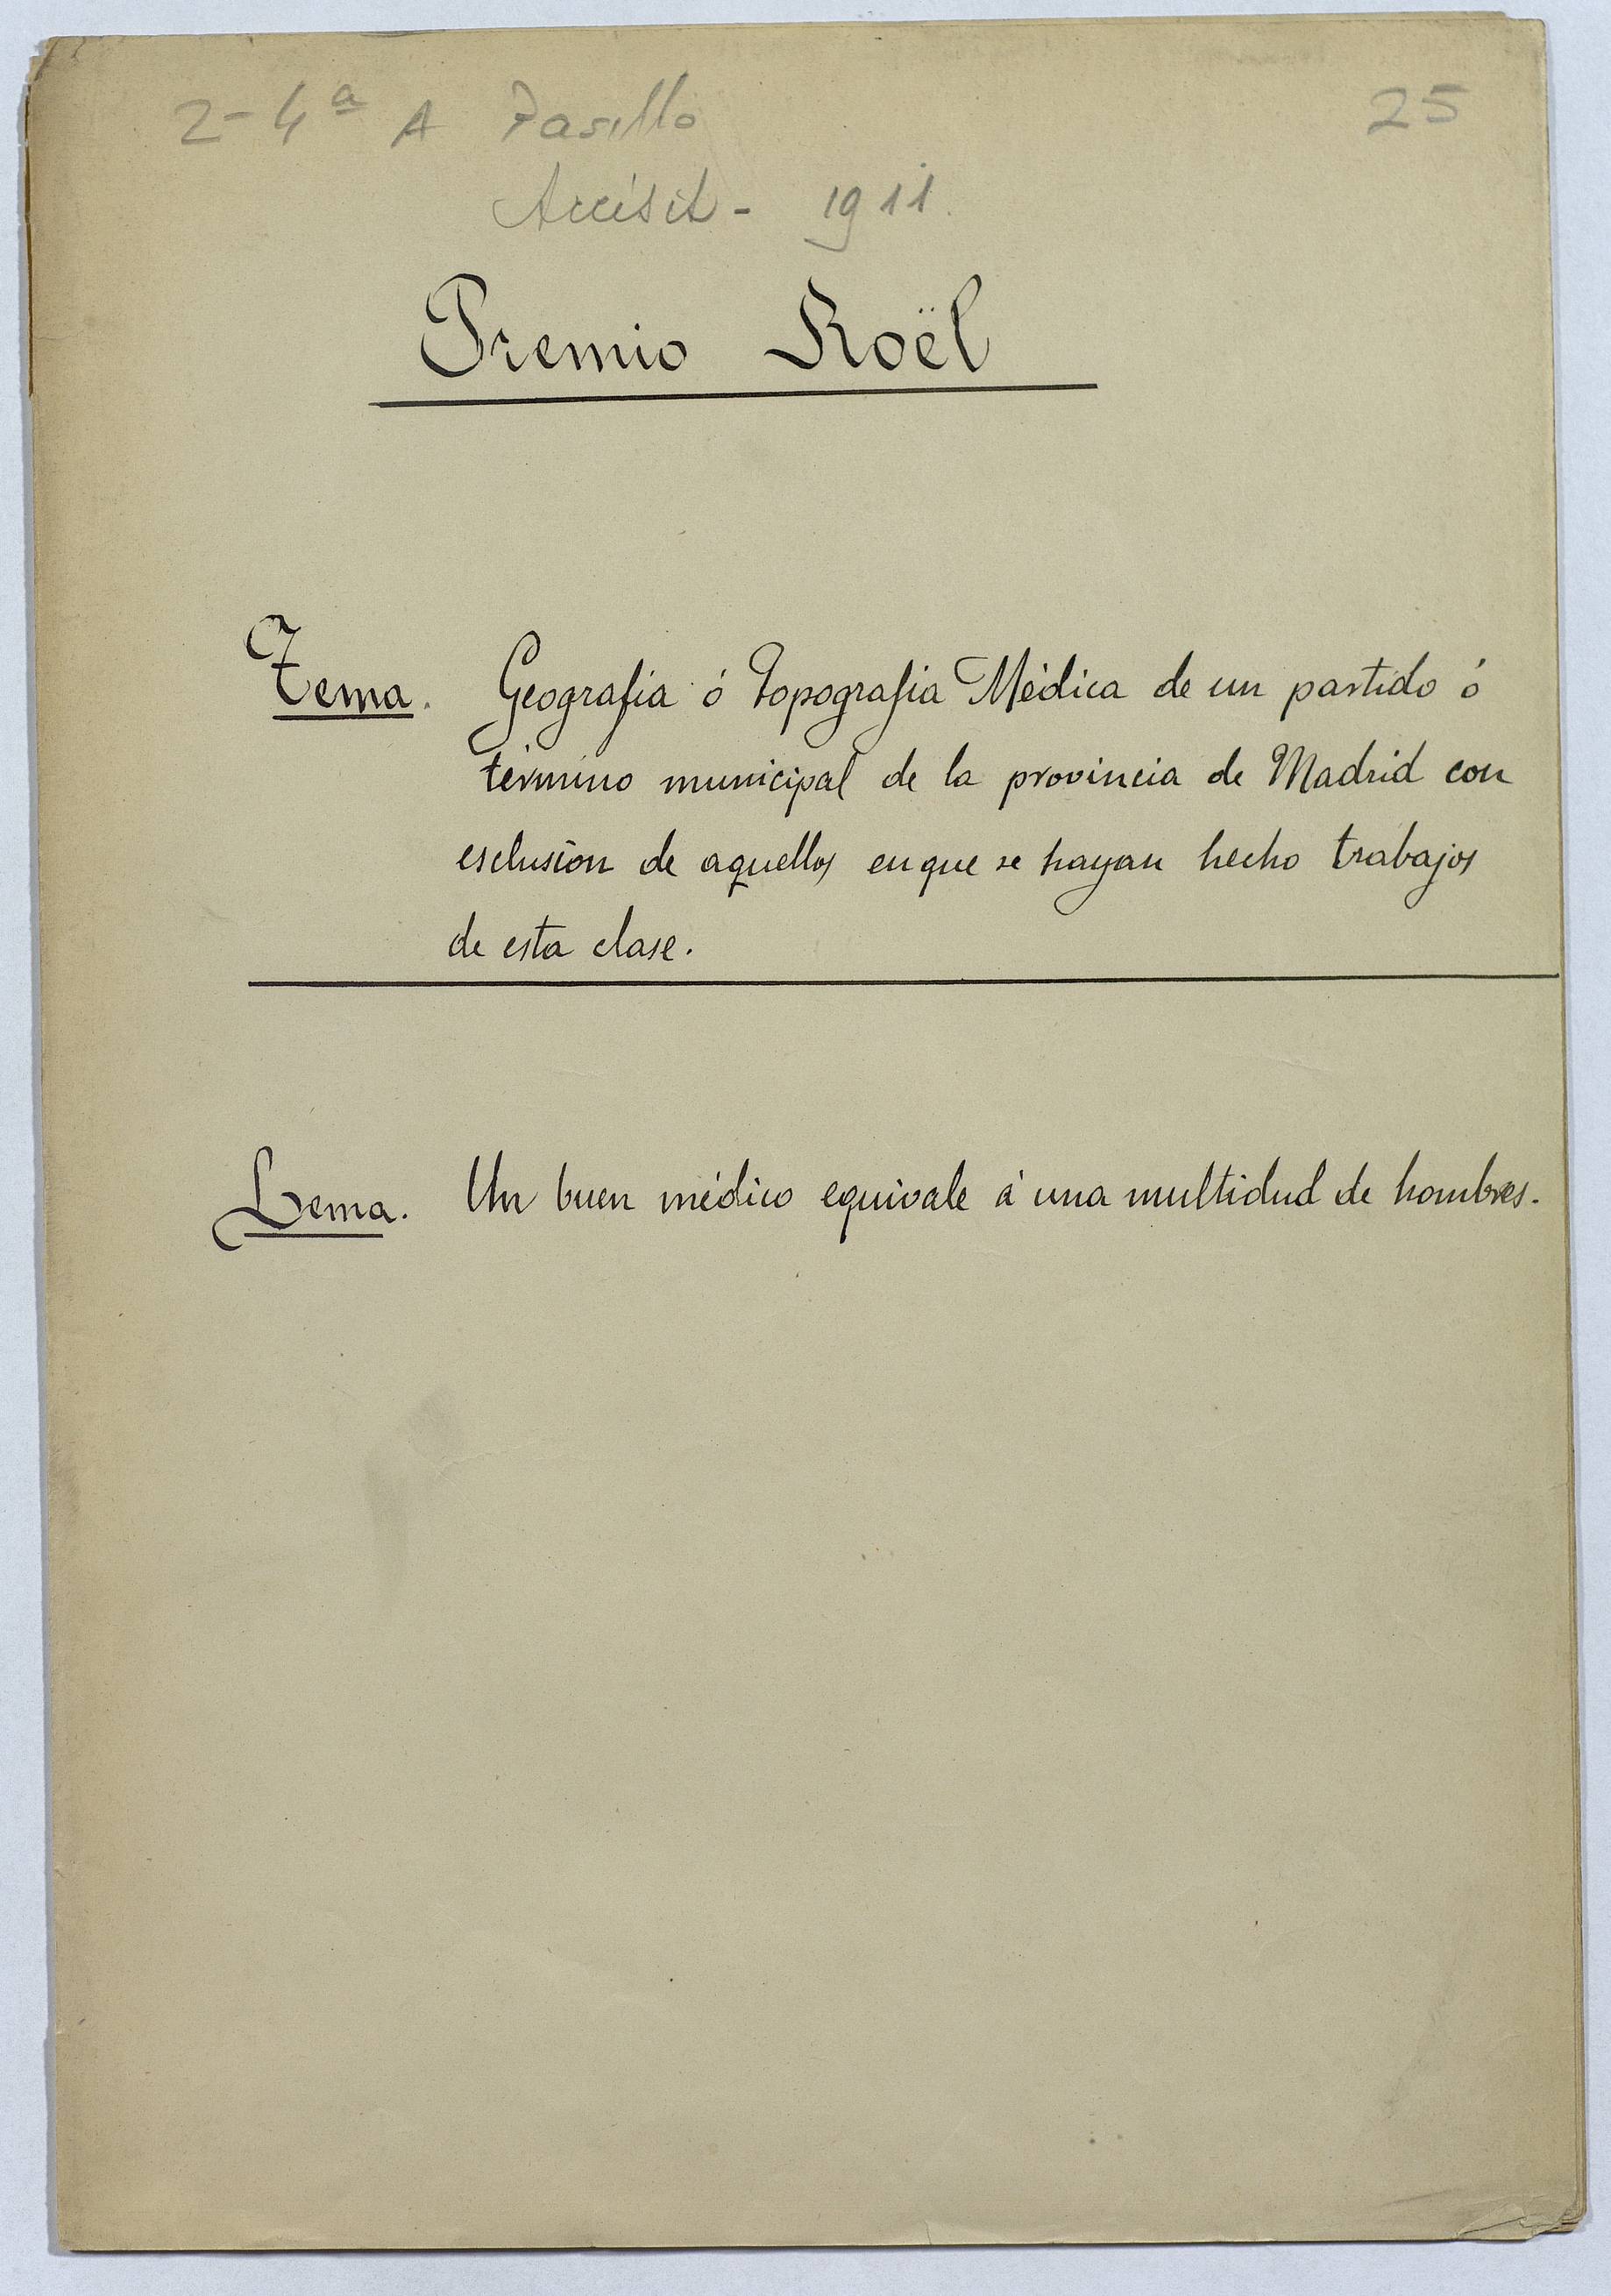 2-4ª A Pasillo
25
Accésit - 1911.
Premio Roël
Tema. Geografia ó Topografia Médica de un partido ó
término municipal de la provincia de Madrid con
esclusión de aquellos en que se hayan hecho trabajos
de esta clase.
Lema. Un buen médico equivale á una multidud de hombres.